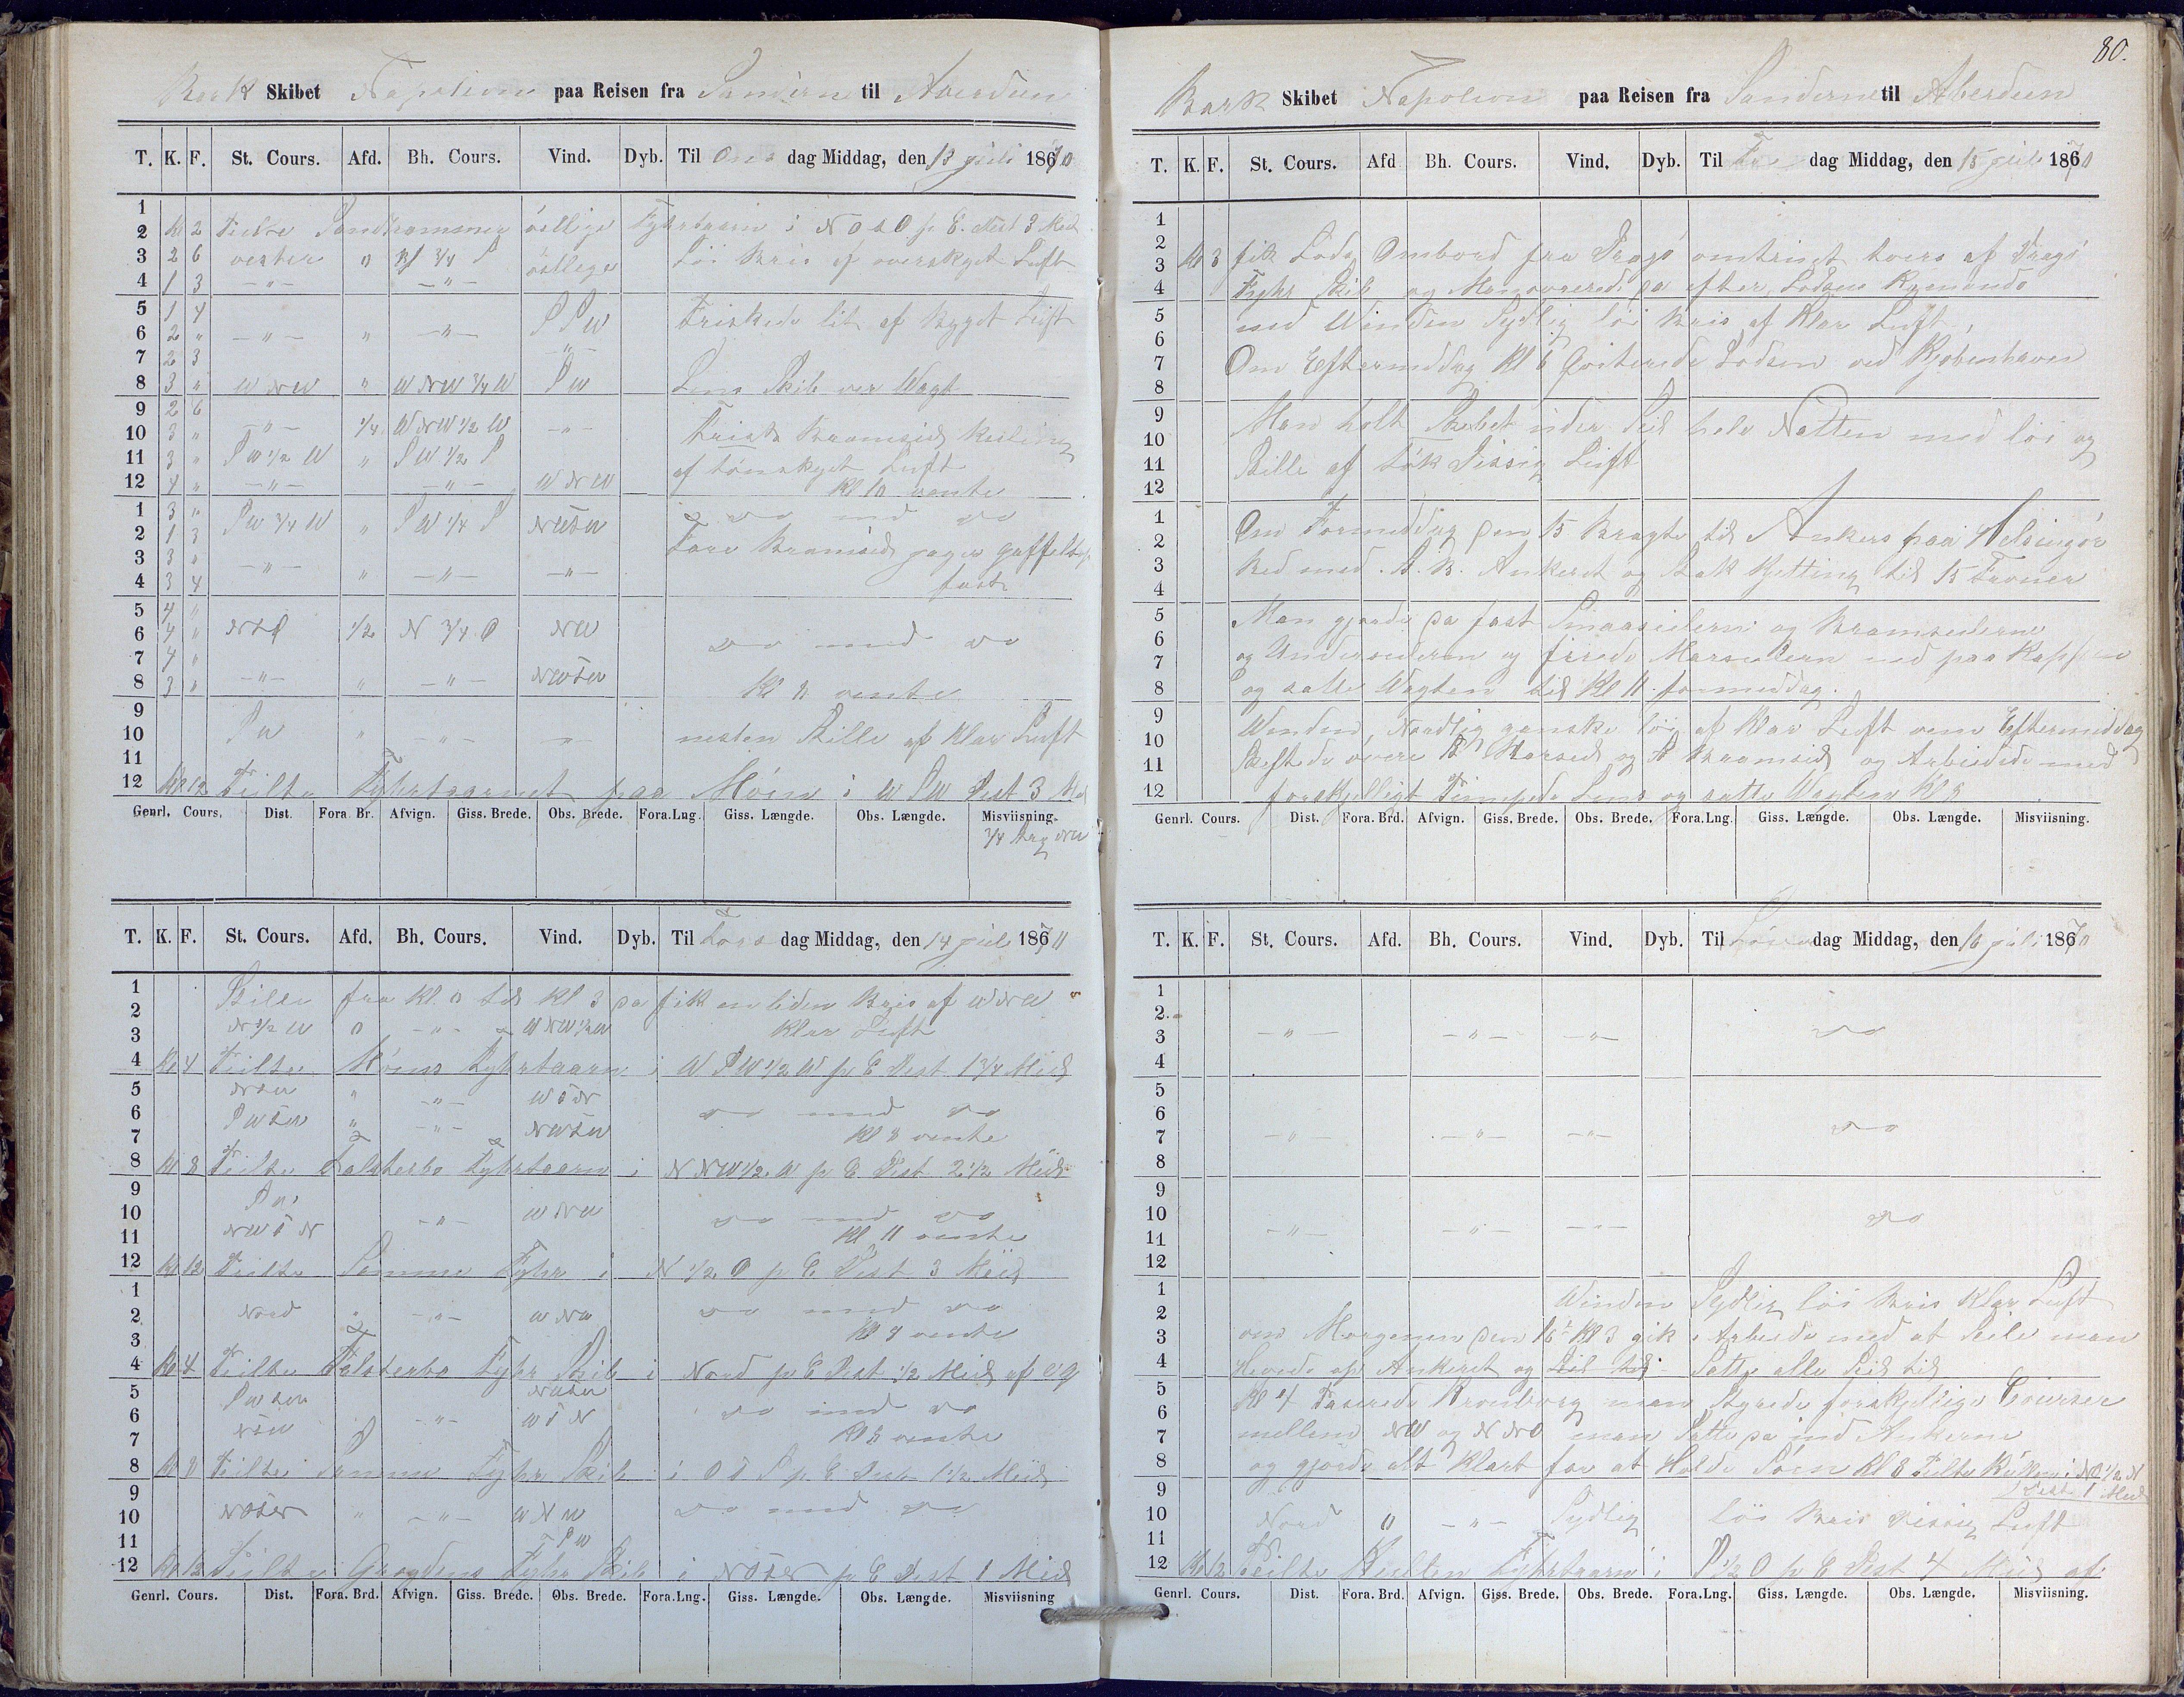 Bark Skibet Napoleon paa Reisen fra til Aberdeen
T. K. F. St. Cours. Afd. Bh. Cours. Vind. Dyb. Til Ons dag Middag, den 13 juli 1870
1
2 Kl 2 Peilte Sandhammer östlige Fyhrtaarn i N O t O p C. Dist 3 Miil
3 2 6 vester 0 3/4 S östlige Löi Bris af overskyet Luft
4 1 3 -"- -"-
5 1 4 S S W Friskede lit af Bygget Luft
6 2 " -"- " -"- -"-
7 2 3
8 3 " W N W " W N W 3/4 W S W Lens Skib ver Wagt
9 2 6
10 3 " -"- 1/4 W N W 1/2 W -"- Frisk Bramseils Keiling
11 3 " S W 1/2 W " S W 1/2 S af tönskyet Luft
12 4 " -"- -"- W N W Kl 10 vente
1 3 " S W 3/4 W " S W 1/4 S NWtW do med do
2 1 3 Fore Bramseil jager gaffeltop
3 3 " -"- " -"- -"- fast
4 3 4
5 4 "
6 4 " NtO 1/2 N 3/4 O NW do med do
7 4 "
8 3 " -"- " -"- NWtW Kl 8 vente
9
10 S W " -"- " nesten Stille af Klar Luft
11
12 Kl 12 Peilte Fyhrtaarnet paa Möen i W S W Dist 3 Miil
Genrl. Cours. Dist. Fora. Br. Afvign. Giss. Brede. Obs. Brede. Fora.Lng. Giss. Længde. Obs. Længde. Misviisning.
3/4 Strg NW
T. K. F. St. Cours. Afd. Bh. Cours. Vind. Dyb. Til Tors dag Middag, den 14 juli 1870
1 Stille fra Kl. 0 til Kl 3 da fik en liden Bris af W N W
2 N 1/2 W 0 -"- W N W 1/2 W Klar Luft
3
4 Kl 4 Peilte Möens Fyhrtaarn i W S W 1/2 W p C Dist 1 3/4 Miil
5 NtW " -"- W t N
6 S W t W " -"- NWtW do med do
7 Kl 8 vente
8 Kl 8 Peilte Falsterbo Fyhrtaarn i N N W 1/2 W p C Dist 2 1/2 Miil
9 S W
10 NWtN -"- W N W do med do
11 Kl 11 vente
12 Kl 12 Peilte Samme Fyhr i N 1/2 O p C Dist 3 Miil
1
2 Nord " -"- W N W do med do
3 Kl 4 vente
4 Kl 4 Peilte Falsterbo Fyhr Skib i Nord p C Dist 1/2 Miil af
5 S W t W NWtW
6 NtW -"- W t N do med do
7 Kl 8 vente
8 Kl 8 Peilte Samme Fyhr Skib i O t S p C Dist 1 1/2 Miil
9
10 NOtN " -"- W N W do med do
11 S W
12 Kl 12 Peilte Fyhr Skib i NOtN p C Dist 1 Miil
Genrl. Cours. Dist. Fora. Brd. Afvign. Giss. Brede. Obs. Brede. Fora.Lng. Giss. Længde. Obs. Længde. Misviisning
80.
Bark Skibet Napoleon paa Reisen fra til Aberdeen
T. K. F. St. Cours. Afd Bh. Cours. Vind. Dyb. Til Fre dag Middag, den 15 juli 1870
1
2
3 Kl 3 fik Lods Ombord fra Dragö omtrint tvers af Dragö
4 Fyhr Skib og Manovrerede da efter Lodsens Komando
5 med Winden Sydlig löi Bris af Klar Luft,
6
7 Om Eftermiddag Kl 6 qviterede Lodsen ved Kjöbenhaven
8
9 Man holt Skibet under Seil hele Natten med löi og
10 Stille af tök Dissig Luft
11
12
1 Om Formeddag den 15 Bragte til Ankers paa Helsingör
2
3 Red med S. B. Ankeret og Stak Kjetting til 15 Favner
4
5 Man gjorde da fast Smaaseilern og Bramseilern
6 og Underseilern og firede Marseilern ned paa Kappen
7
8 og satte Wagten til Kl 11 formeddag.
9 Winden Nordlig ganske löi af Klar Luft om Eftermiddag
10 Skiftede övere Marseil og Bramseil og Arbeidede med
11
12 forskjelligt Pumpede Lens og satte Wagten Kl 8
Genrl. Cours. Dist. Fora. Brd. Afvign. Giss. Brede. Obs. Brede. Fora.Lng. Giss. Længde. Obs. Længde. Misviisning.
T. K. F. St. Cours. Afd. Bh. Cours. Vind. Dyb. Til Löver dag Middag, den 16 juli 1870
1
2
3 -"- -"- -"- do
4
5
6
7 -"- -"- -"- do
8
9
10
11 -"- -"- -"- do
12
1 Winden Sydlig löi Bris Klar Luft
2 om Morgenen den 16 Kl 3 gik i Arbeide med at Seile man
3
4 Hevede op Ankeret og Satte alle Seil til
5 Kl 4 Paserede Kronborg man Styrede forskjellige Courser
6
7 mellem NW og N N O man Satte da ind Ankerne
8 og gjorde alt klart for at Holde Söen Kl 8 Peilte Kullen i NO 1/2 N
9 Dist 1 Miil
10 Nord 0 -"- Sydlig löi Bris dissig Luft
11
12 Kl 12 Peilte Kullen Fyhrtaarn i S 1/2 O p C Dist 4 Miil af
Genrl. Cours. Dist. Fora. Brd. Afvign. Giss. Brede. Obs. Brede. Fora.Lng. Giss. Længde. Obs. Længde. Misviisning.